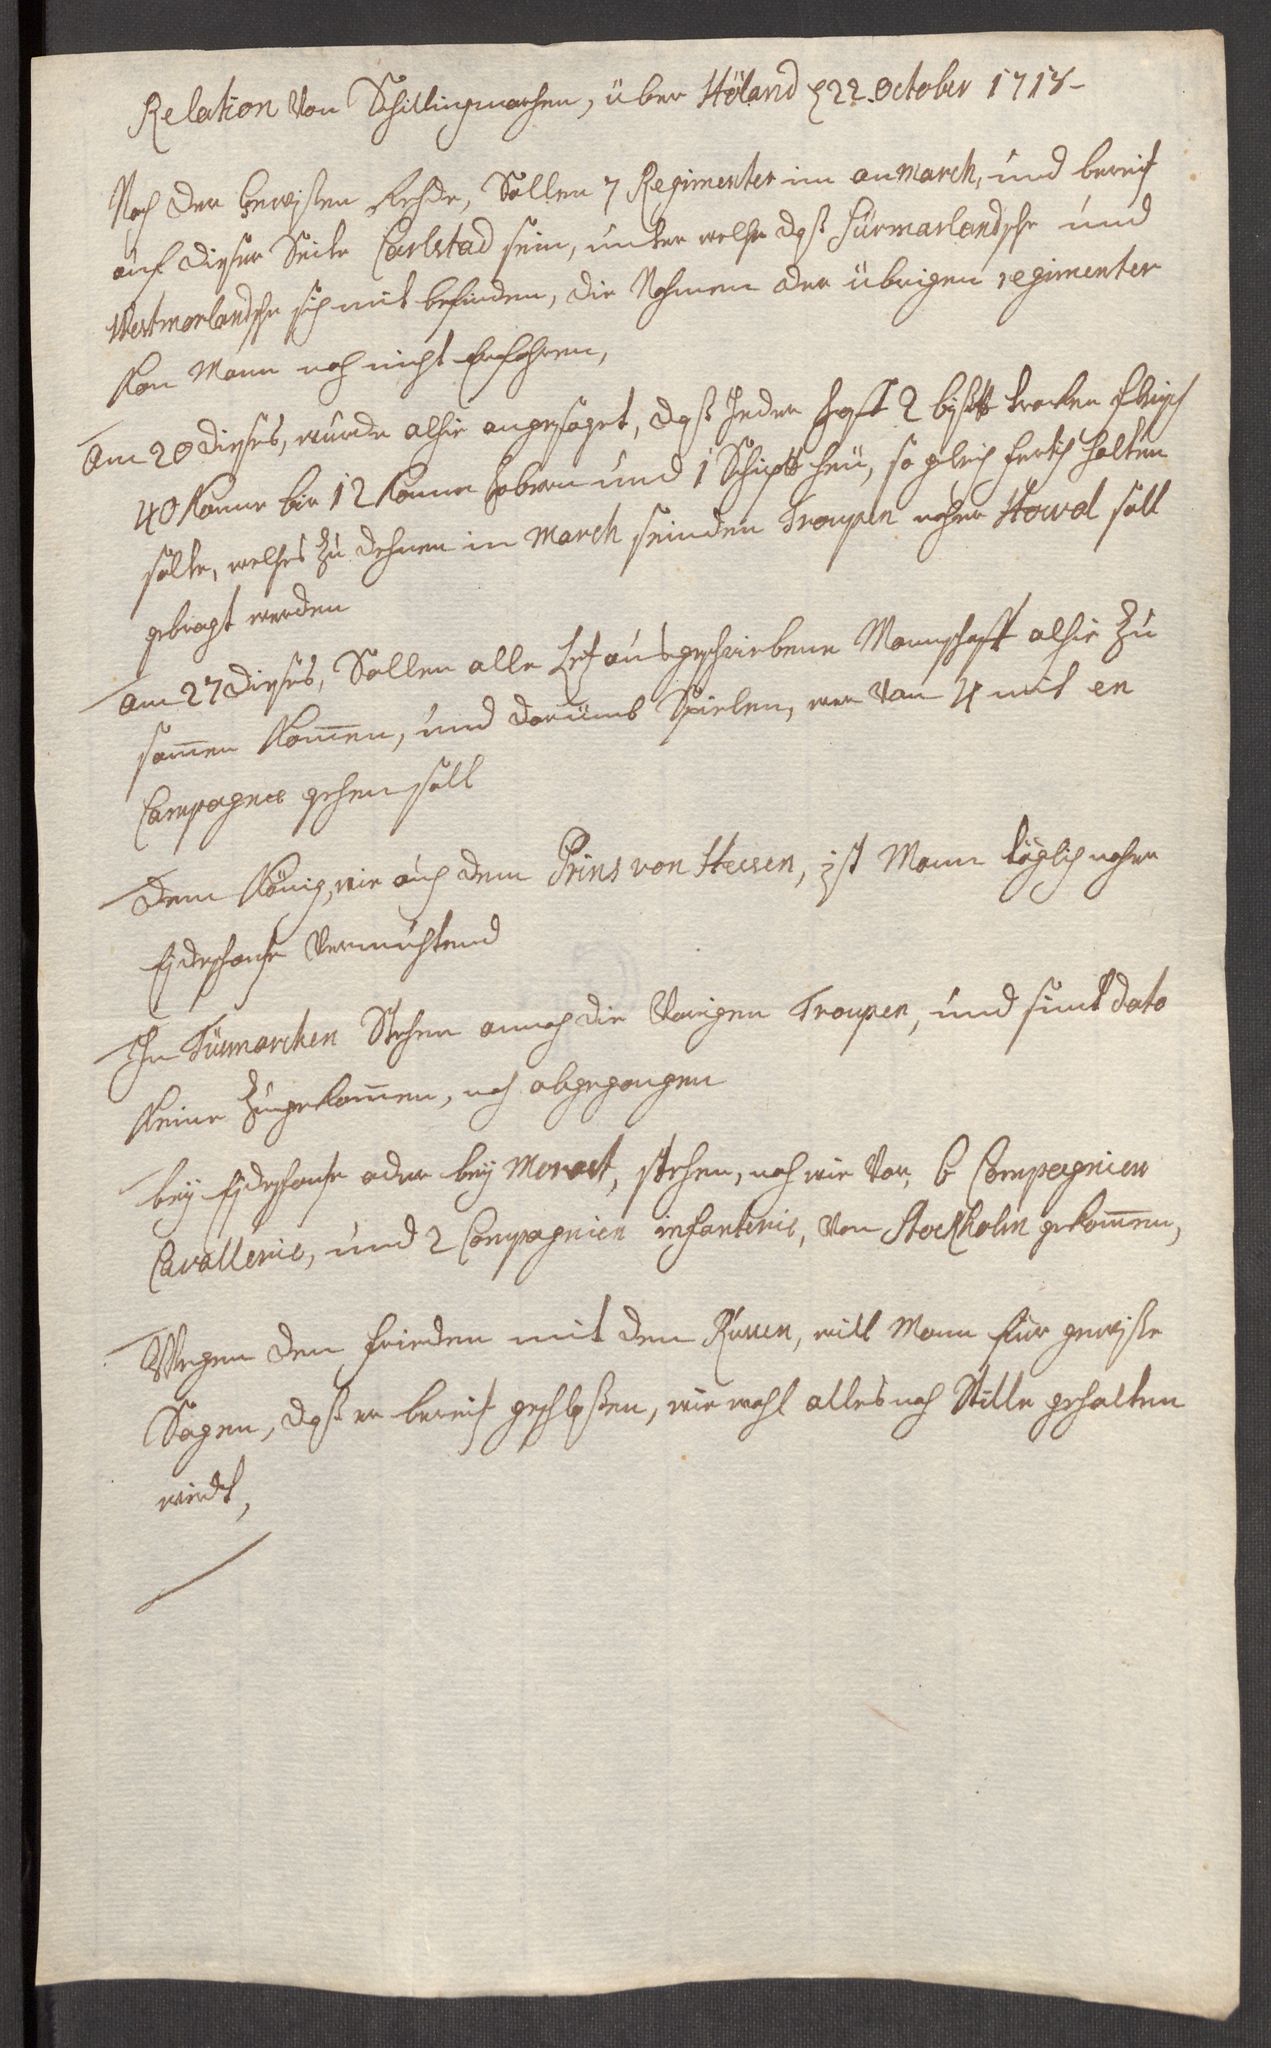 Relation von Schillingmarken, über Höland d 22 October 1718
Nach der gewissen Rehde, Sollen 7 Regimenter im anmarch, und bereit
auf dieser Seite Carlstad sein, unter welche daß Sürmarlandsche und
Westmorlandsche sich mit befinden, die Nahmen der übrigen regimenter
Kan Mann noch nicht Erfahren,
Am 20 dieses, wurde alhie angesaget, daß Jeder Hoff 2 trocken fleisch
40 Kanne bir 12 Kanne Habern und 1 Schip℔ heü, so gleich fertih halten
solte, welches zu dehnen in March seinden Troupen naher Stowol soll
gebragt werden
Am 27 dieses, Sollen alle ausgeschriebene Manschafft alhie zu
samen Komen, und darümb Spielen, wer von 4 mit en
Campagnie gehen soll
Dem König, wie auch dem Prins von Hessen, ist Mann täglich naher
Ejdeschanse Vermuhtend
In Türmarcken Stehen annoch die Vorigen Troupen, und sint dato
Keine zugekomen, noch abgegangen
bey Ejdeschanse oder bey Morast, stehen, noch wie Vor, 6 Compagnien
Cavallerie, und 2 Compagnien infanterie, von Stockholm gekomen,
Wegen den frieden mit den Russen, will Mann für gewisse
Sagen, daß er bereit geschloßen, wie wohl alles noch Stille gehalten
wirdt,